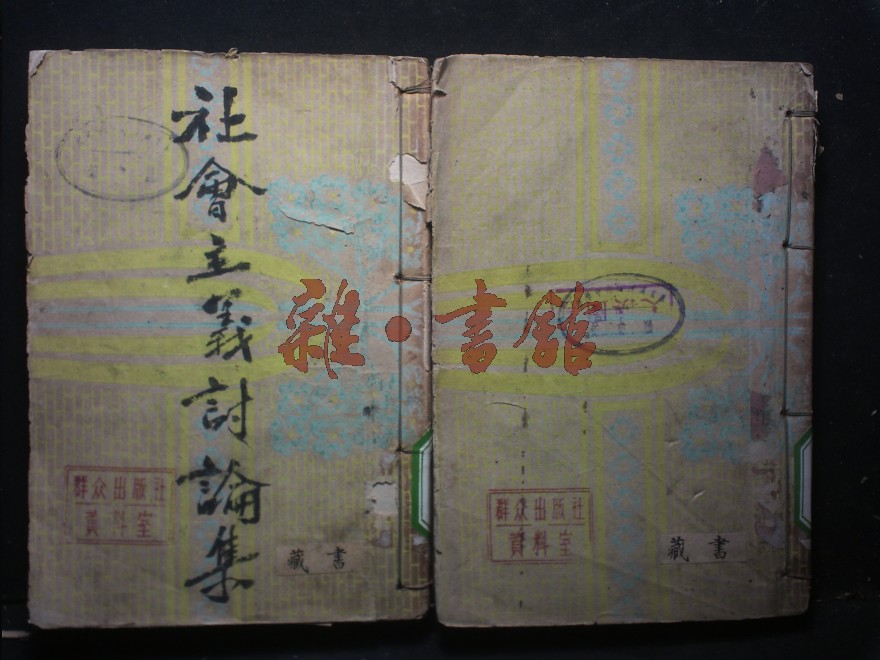 社會主義討論集
雜·書館
群众出版社
資料室
藏書
群众出版社
資料室
藏書